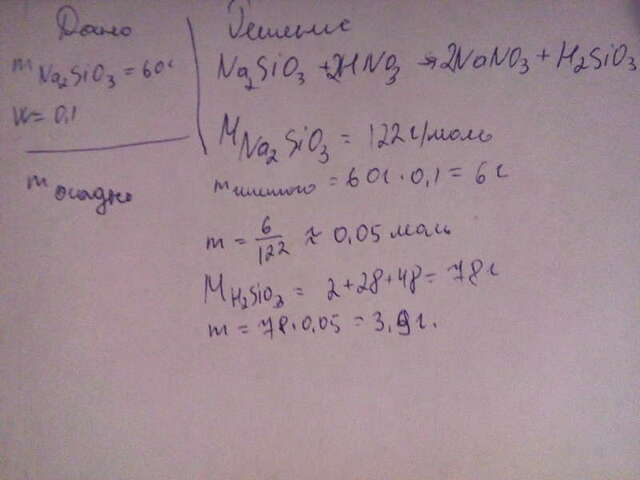 Дано
m Na₂SiO₃ = 60г
W = 0,1
m осадка
Решение
Na₂SiO₃ + 2HNO₃ → 2NaNO₃ + H₂SiO₃
M Na₂SiO₃ = 122 г/моль
m = 60г · 0,1 = 6г
m = 6/122 ≈ 0,05 моль
M H₂SiO₃ = 2+28+48 = 78г
m = 78·0,05 = 3,9г.